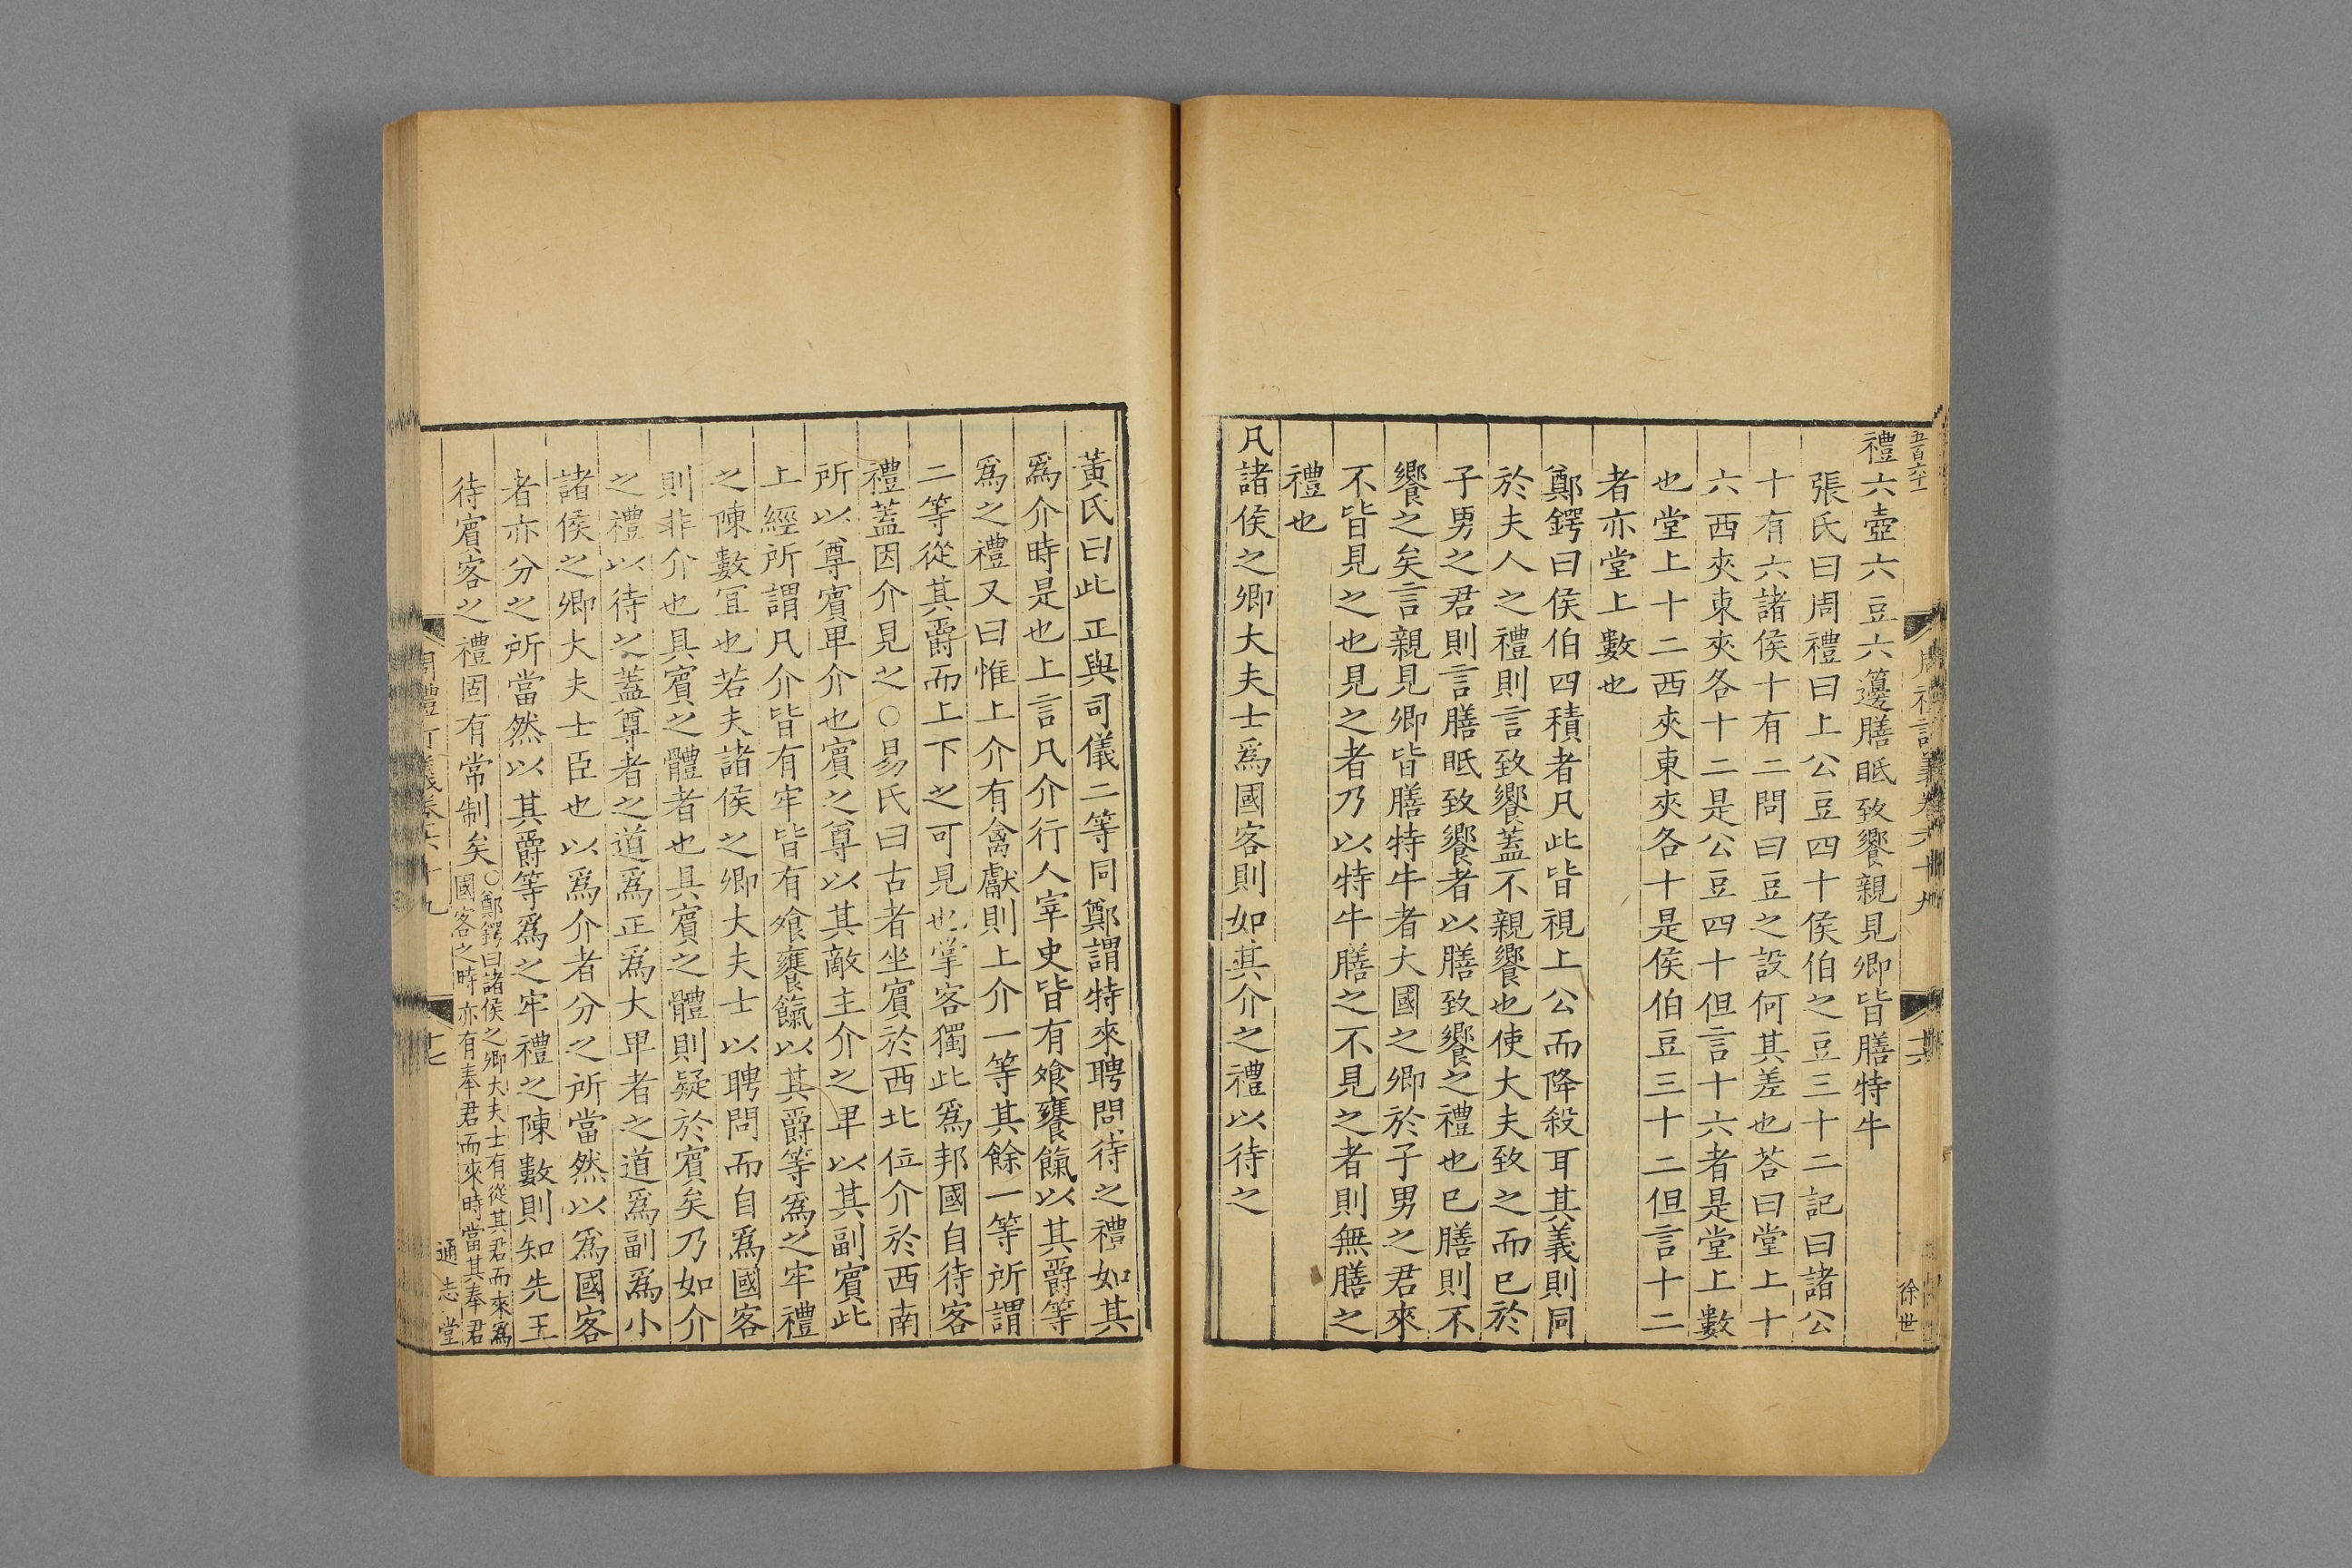 五百六十一
禮六壺六豆六籩膳眂致饗親見卿皆膳特牛
張氏曰周禮曰上公豆四十侯伯之豆三十二記曰諸公
十有六諸侯十有二問曰豆之設何其差也荅曰堂上十
六西夾東夾各十二是公豆四十但言十六者是堂上數
也堂上十二西夾東夾各十是侯伯豆三十二但言十二
者亦堂上數也
鄭鍔曰侯伯四積者凡此皆視上公而降殺耳其義則同
於夫人之禮則言致饗蓋不親饗也使大夫致之而已於
子男之君則言膳眂致饗者以膳致饗之禮也已膳則不
饗之矣言親見卿皆膳特牛者大國之卿於子男之君來
不皆見之也見之者乃以特牛膳之不見之者則無膳之
禮也
凡諸侯之卿大夫士爲國客則如其介之禮以待之
徐世
黃氏曰此正與司儀二等同鄭謂特來聘問待之禮如其
爲介時是也上言凡介行人宰史皆有飧饔餼以其爵等
爲之禮又曰惟上介有禽獻則上介一等其餘一等所謂
二等從其爵而上下之可見也掌客獨此爲邦國自待客
禮蓋因介見之○易氏曰古者坐賓於西北位介於西南
所以尊賓卑介也賓之尊以其敵主介之卑以其副賓此
上經所謂凡介皆有牢皆有飧饔餼以其爵等爲之牢禮
之陳數宜也若夫諸侯之卿大夫士以聘問而自爲國客
則非介也具賓之體者也具賓之體則疑於賓矣乃如介
之禮以待之蓋尊者之道爲正爲大卑者之道爲副爲小
諸侯之卿大夫士臣也以爲介者分之所當然以爲國客
者亦分之所當然以其爵等爲之牢禮之陳數則知先王
待賓客之禮固有常制矣○鄭鍔曰諸侯之卿大夫士有從其君而來爲
國客之時亦有奉君而來時當其奉君
通志堂
十七